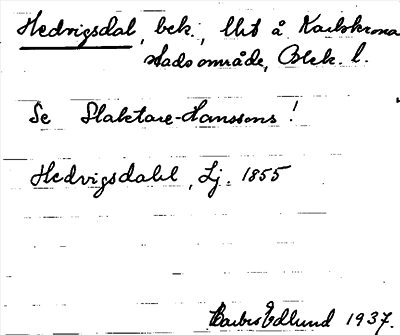 Hedvigsdal, bek., lht å Karlskrona
stadsområde, Blek. l.
Se Slaktare-Hanssons!
Hedvigsdahl, Lj. 1855
Edlund 1937.